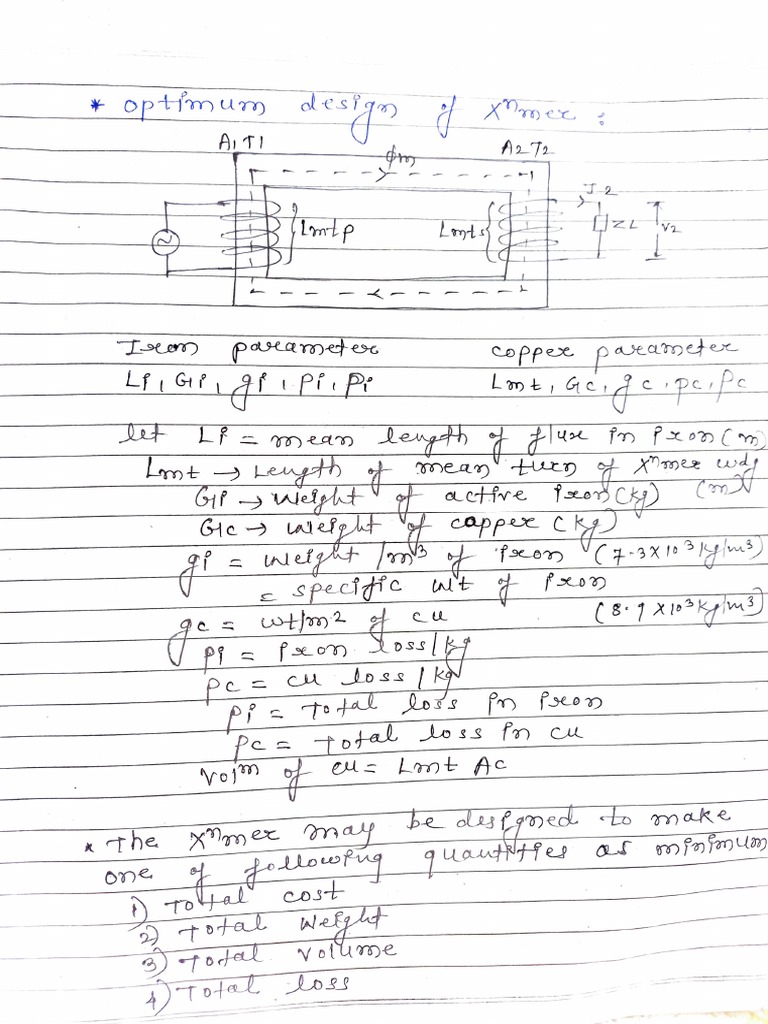 * optimum design of Xⁿmer :
A1T1 A2T2
Φm
I2
Lmtp Lmts ZL V2
Iron parameter copper parameter
Li, Gi, gi, pi, Pi Lmt, Gc, gc, pc, Pc
let Li = mean length of flux in iron (m)
Lmt → Length of mean turn of Xⁿmer wdg (m)
Gi → weight of active iron (kg)
Gc → weight of copper (kg)
gi = weight /m³ of iron (7.3×10³ kg/m³)
= specific wt of iron
gc = wt/m² of cu (8.9×10³ kg/m³)
pi = iron loss/kg
pc = cu loss/kg
Pi = Total loss in iron
Pc = Total loss in cu
Volᵐ of cu = Lmt Ac
* The Xⁿmer may be designed to make
one of following quantities as minimum
1) Total cost
2) Total Weight
3) Total volume
4) Total loss